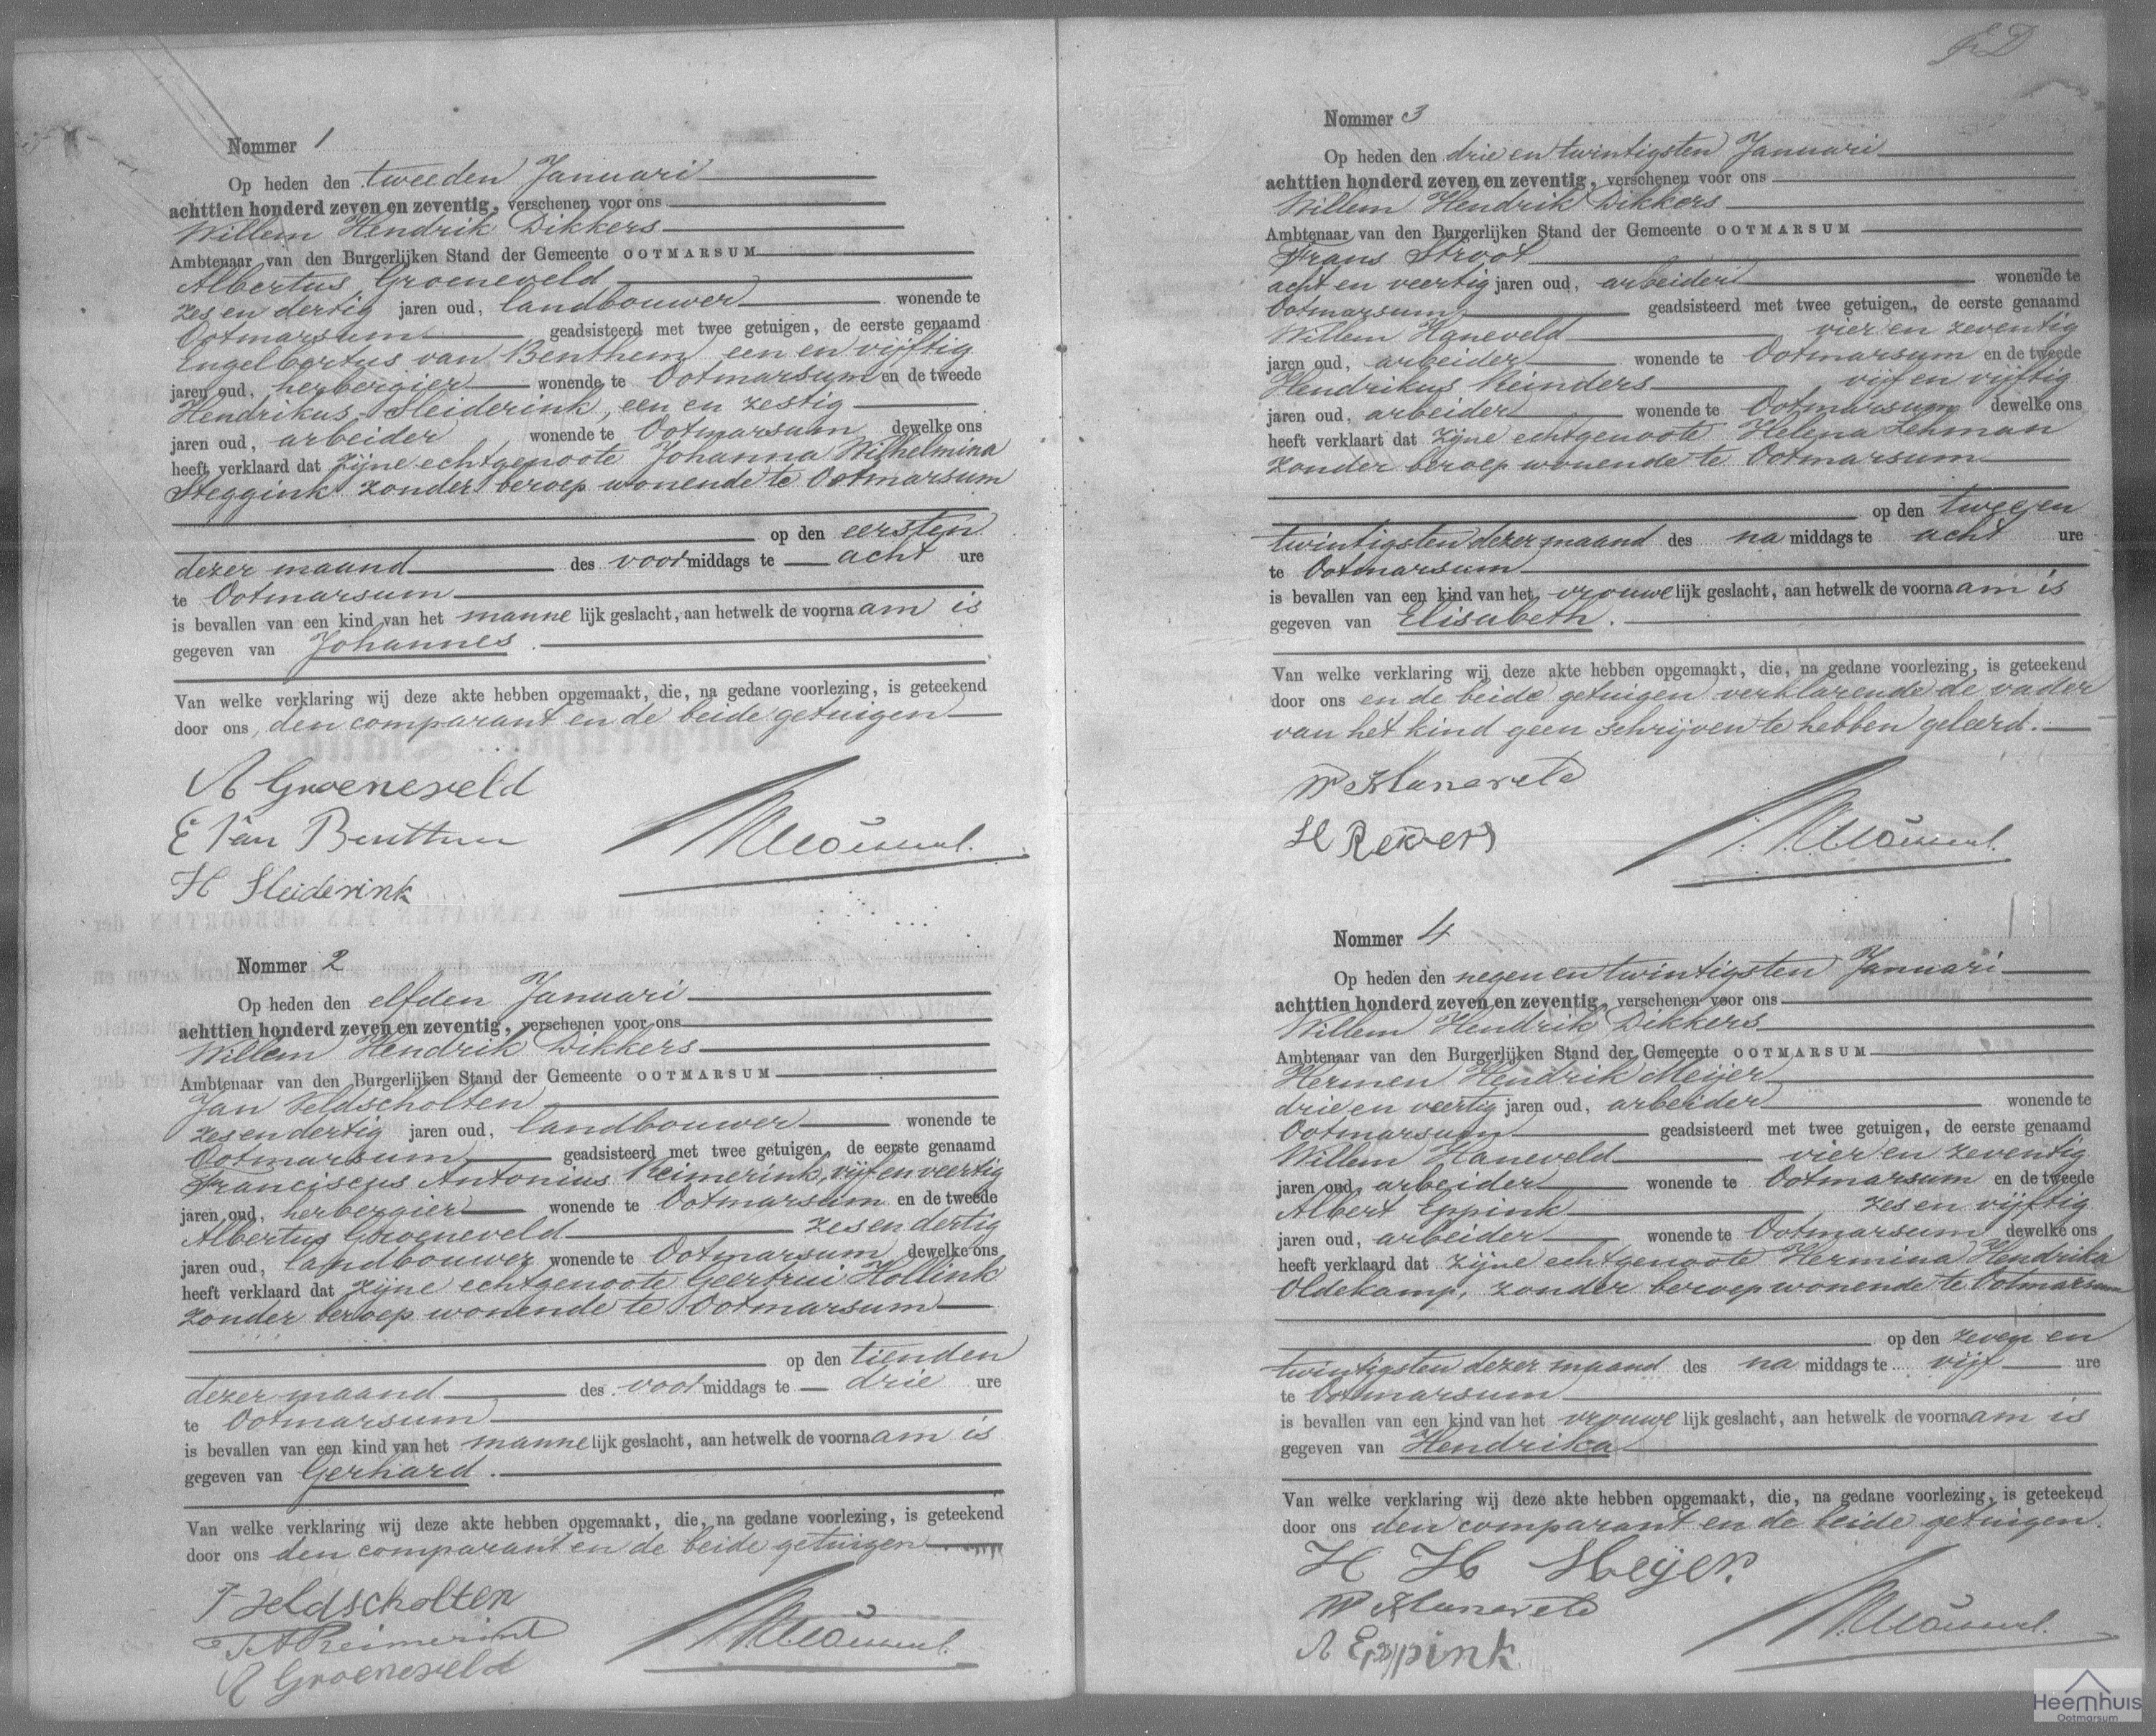 Nommer 1
Op heden den tweeden Januari
achttien honderd zeven en zeventig, verschenen voor ons
Willem Hendrik Dikkers
Ambtenaar van den Burgerlijken Stand der Gemeente OOTMARSUM
Albertus Groeneveld
zes en dertig jaren oud, landbouwer wonende te
Ootmarsum geadsisteerd met twee getuigen, de eerste genaamd
Engelbertus van Benthem een en vijftig
jaren oud, herbergier wonende te Ootmarsum en de tweede
Hendrikus Sleiderink, een en zestig
jaren oud, arbeider wonende te Ootmarsum dewelke ons
heeft verklaard dat zijne echtgenoote Johanna Wilhelmina
Steggink zonder beroep wonende te Ootmarsum
op den eersten
dezer maand des voormiddags te acht ure
te Ootmarsum
is bevallen van een kind van het mannelijk geslacht, aan hetwelk de voornaam is
gegeven van Johannes.
Van welke verklaring wij deze akte hebben opgemaakt, die, na gedane voorlezing, is geteekend
door ons, den comparant en de beide getuigen
A Groeneveld
E Van Benthem
H Sleiderink
Nommer 2
Op heden den elfden Januari
achttien honderd zeven en zeventig, verschenen voor ons
Willem Hendrik Dikkers
Ambtenaar van den Burgerlijken Stand der Gemeente OOTMARSUM
Jan Veldscholten
zes en dertig jaren oud, landbouwer wonende te
Ootmarsum geadsisteerd met twee getuigen, de eerste genaamd
Franciscus Antonius Reimerink, vijf en veertig
jaren oud, herbergier wonende te Ootmarsum en de tweede
Albertus Groeneveld zes en dertig
jaren oud, landbouwer wonende te Ootmarsum dewelke ons
heeft verklaard dat zijne echtgenoote Geertrui Hollink
zonder beroep wonende te Ootmarsum
op den tienden
dezer maand des voormiddags te drie ure
te Ootmarsum
is bevallen van een kind van het mannelijk geslacht, aan hetwelk de voornaam is
gegeven van Gerhard.
Van welke verklaring wij deze akte hebben opgemaakt, die, na gedane voorlezing, is geteekend
door ons den comparant en de beide getuigen
J Veldscholten
F A Reimerink
A Groeneveld
Nommer 3
Op heden den drie en twintigsten Januari
achttien honderd zeven en zeventig, verschenen voor ons
Willem Hendrik Dikkers
Ambtenaar van den Burgerlijken Stand der Gemeente OOTMARSUM
Frans Stroot
acht en veertig jaren oud, arbeider wonende te
Ootmarsum geadsisteerd met twee getuigen, de eerste genaamd
Willem Haneveld vier en zeventig
jaren oud, arbeider wonende te Ootmarsum en de tweede
Hendrikus Reinders vijf en vijftig
jaren oud, arbeider wonende te Ootmarsum dewelke ons
heeft verklaart dat zijne echtgenoote Helena Lehman
zonder beroep wonende te Ootmarsum
op den twee en
twintigsten dezer maand des namiddags te acht ure
te Ootmarsum
is bevallen van een kind van het vrouwelijk geslacht, aan hetwelk de voornaam is
gegeven van Elisabeth.
Van welke verklaring wij deze akte hebben opgemaakt, die, na gedane voorlezing, is geteekend
door ons en de beide getuigen verklarende de vader
van het kind geen schrijven te hebben geleerd.
W Haneveld
H
Nommer 4
Op heden den negen en twintigsten Januari
achttien honderd zeven en zeventig, verschenen voor ons
Willem Hendrik Dikkers
Ambtenaar van den Burgerlijken Stand der Gemeente OOTMARSUM
Hermen Hendrik Meijer
drie en veertig jaren oud, arbeider wonende te
Ootmarsum geadsisteerd met twee getuigen, de eerste genaamd
Willem Haneveld vier en zeventig
jaren oud, arbeider wonende te Ootmarsum en de tweede
Albert Eppink zes en vijftig
jaren oud, arbeider wonende te Ootmarsum dewelke ons
heeft verklaard dat zijne echtgenoote Hermina Hendrika
Oldekamp, zonder beroep wonende te Ootmarsum
op den zeven en
twintigsten dezer maand des namiddags te vijf ure
te Ootmarsum
is bevallen van een kind van het vrouwelijk geslacht, aan hetwelk de voornaam is
gegeven van Hendrika
Van welke verklaring wij deze akte hebben opgemaakt, die, na gedane voorlezing, is geteekend
door ons den comparant en de beide getuigen.
H H Meijer.
W Haneveld
A Eppink
Heemhuis
Ootmarsum